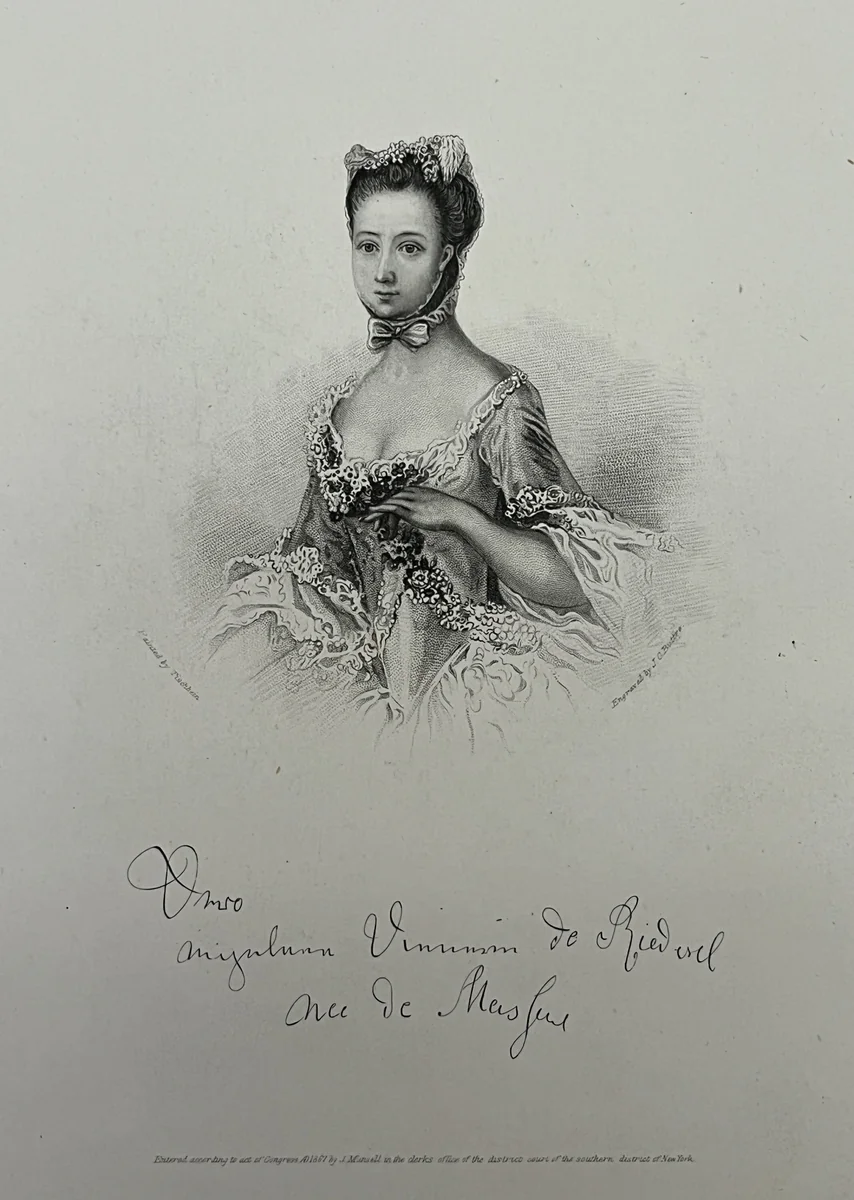 Painted by Tischbein
Engraved by J. C. Buttre
Dienerin de Riedesel
nee de
Entered according to act of Congress AD 1867 by J. Munsell in the clerks office of the district court of the southern district of New York.